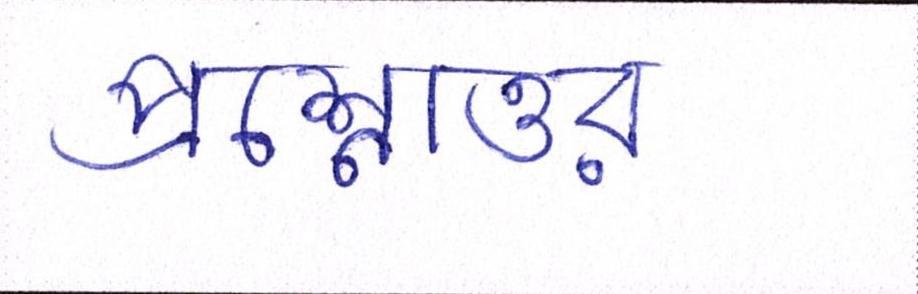 প্রশ্নোত্তর